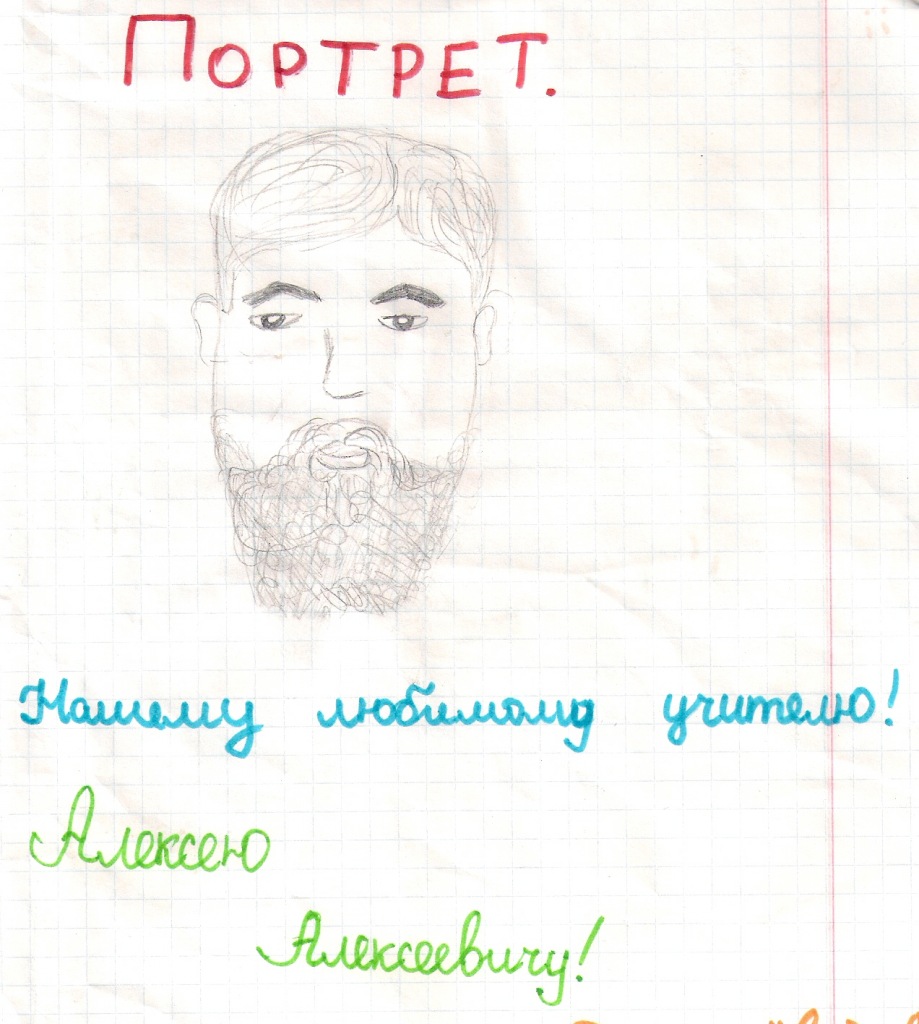 Портрет.
Нашему любимому учителю!
Алексею
Алексеевичу!